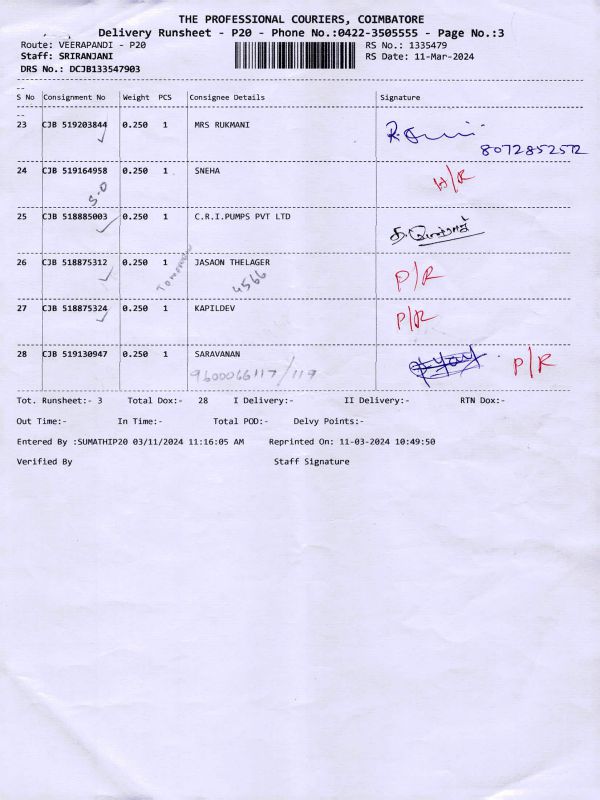 THE PROFESSIONAL COURIERS, COIMBATORE
Delivery Runsheet - P20 - Phone No.:0422-3505555 - Page No.:3
Route: VEERAPANDI - P20 RS No.: 1335479
Staff: SRIRANJANI RS Date: 11-Mar-2024
DRS No.: DCJB133547903
S No Consignment No Weight PCS Consignee Details Signature
23 CJB 519203844 0.250 1 MRS RUKMANI
8072852572
24 CJB 519164958 0.250 1 SNEHA H/R
S.O
25 CJB 518885003 0.250 1 C.R.I.PUMPS PVT LTD
26 CJB 518875312 0.250 1 JASAON THELAGER P/R
Tomorrow 4566
27 CJB 518875324 0.250 1 KAPILDEV P/R
28 CJB 519130947 0.250 1 SARAVANAN P/R
9600066117/119
Tot. Runsheet:- 3 Total Dox:- 28 I Delivery:- II Delivery:- RTN Dox:-
Out Time:- In Time:- Total POD:- Delvy Points:-
Entered By :SUMATHIP20 03/11/2024 11:16:05 AM Reprinted On: 11-03-2024 10:49:50
Verified By Staff Signature